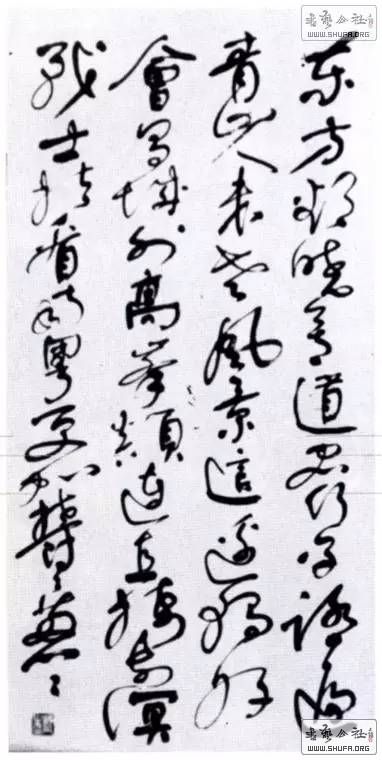 书艺公社
WWW.SHUFA.ORG
东方欲晓莫道君行早踏遍
青山人未老风景這边獨好
會昌城外高峯顛连直接东溟
战士指看南粵更加鬱々葱々
书艺公社
WWW.SHUFA.ORG